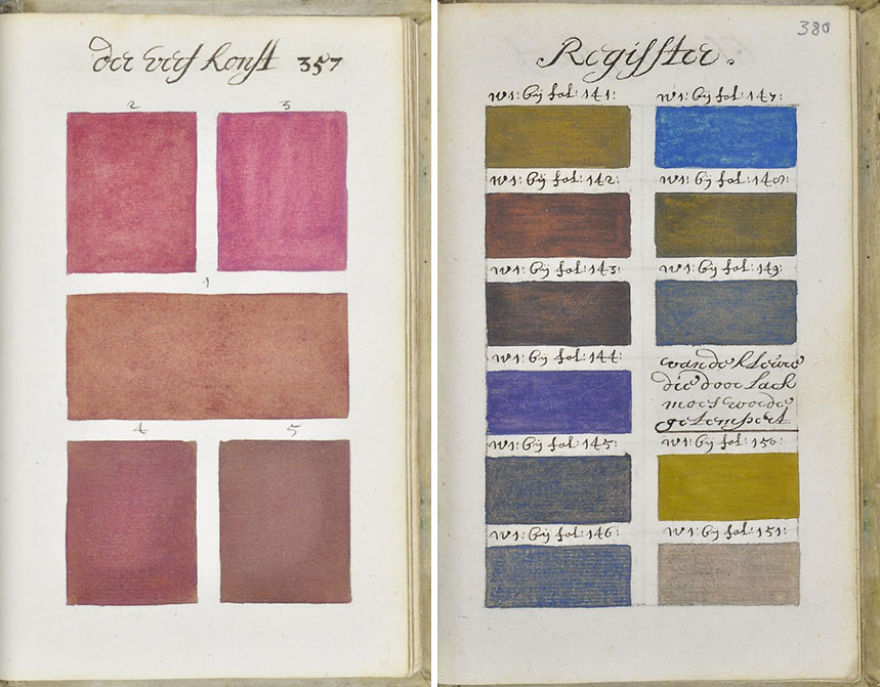 der verf konst 357
2 3
1
4 5
380
Regisster.
w1: bÿ fol: 141: w1: bÿ fol: 147:
w1: bÿ fol: 142: w1: bÿ fol: 148:
w1: bÿ fol: 143: w1: bÿ fol: 149:
w1: bÿ fol: 144:
van de kleure
die door lack
moet worde
getempert
w1: bÿ fol: 145: w1: bÿ fol: 150:
w1: bÿ fol: 146: w1: bÿ fol: 151: